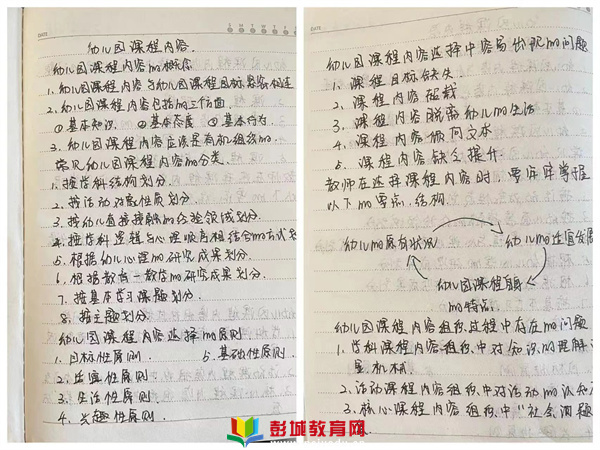 DATE
S M T W T F
幼儿园课程内容.
幼儿园课程内容的概念
1. 幼儿园课程内容与幼儿园课程目标
2. 幼儿园课程内容包括的三个方面.
① 基本知识 ② 基本态度 ③ 基本行为.
3. 幼儿园课程内容应该是有机组织的.
常见幼儿园课程内容的分类.
1. 按学科结构划分.
2. 按活动对象性质划分.
3. 按幼儿直接接触的经验领域划分.
4. 按学科逻辑与心理顺序相结合的方式划
5. 根据幼儿心理的研究成果划分.
6. 根据教育、教学的研究成果划分.
7. 按基本学习课题划分.
8. 按主题划分.
幼儿园课程内容选择的原则.
1. 目标性原则. 5. 基础性原则.
2. 适宜性原则
3. 生活性原则.
4. 兴趣性原则.
DATE
幼儿园课程内容选择中容易出现的问题
1. 课程目标缺失
2. 课程内容超载
3. 课程内容脱离幼儿的生活
4. 课程内容倾向文本
5. 课程内容缺乏提升.
教师在选择课程内容时, 要牢牢掌握
以下的要点、结构
幼儿的原有状况
幼儿的适宜发展
幼儿园课程目标
的特点.
幼儿园课程内容组织过程中存在的问题
1. 学科课程内容组织中对知识的理解
量机械
2. 活动课程内容组织中对活动的认知
3. 核心课程内容组织中"社会问题
彭城教育网